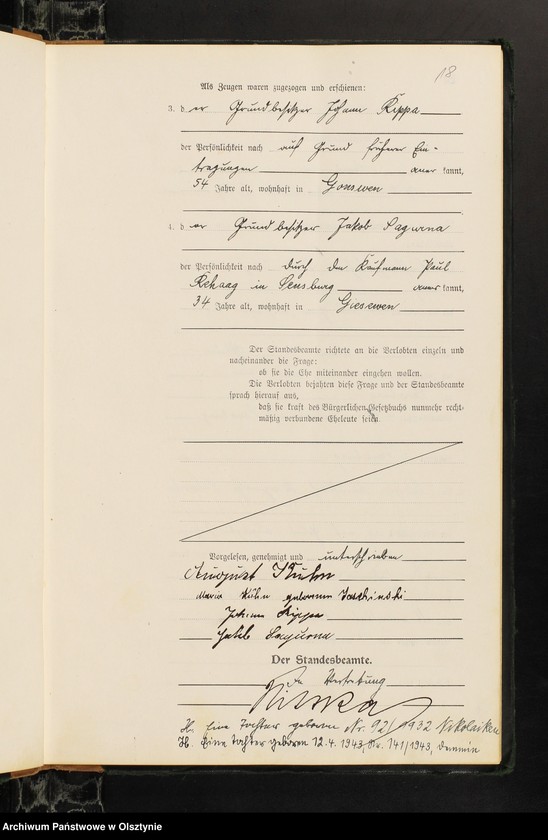 18
Als Zeugen waren zugezogen und erschienen:
3. der Grundbesitzer Johann Kippa
der Persönlichkeit nach auf Grund früherer Ein-
tragungen anerkannt,
54 Jahre alt, wohnhaft in Gonswen
4. der Grundbesitzer Jakob Sagurna
der Persönlichkeit nach durch den Kaufmann Paul
Rehaag in Sensburg anerkannt,
34 Jahre alt, wohnhaft in Giesewen
Der Standesbeamte richtete an die Verlobten einzeln und
nacheinander die Frage:
ob sie die Ehe miteinander eingehen wollen.
Die Verlobten bejahten diese Frage und der Standesbeamte
sprach hierauf aus,
daß sie kraft des Bürgerlichen Gesetzbuchs nunmehr recht-
mäßig verbundene Eheleute seien.
Vorgelesen, genehmigt und unterschrieben
August Kühn
Maria Kühn geborene
Johann Kippa
Jakob Sagurna
Der Standesbeamte.
In Vertretung
H. Eine Tochter geboren Nr. 92/1932 Nikolaiken
H. Eine Tochter geboren 12.4.1943, Nr. 141/1943, Demmin
Archiwum Państwowe w Olsztynie